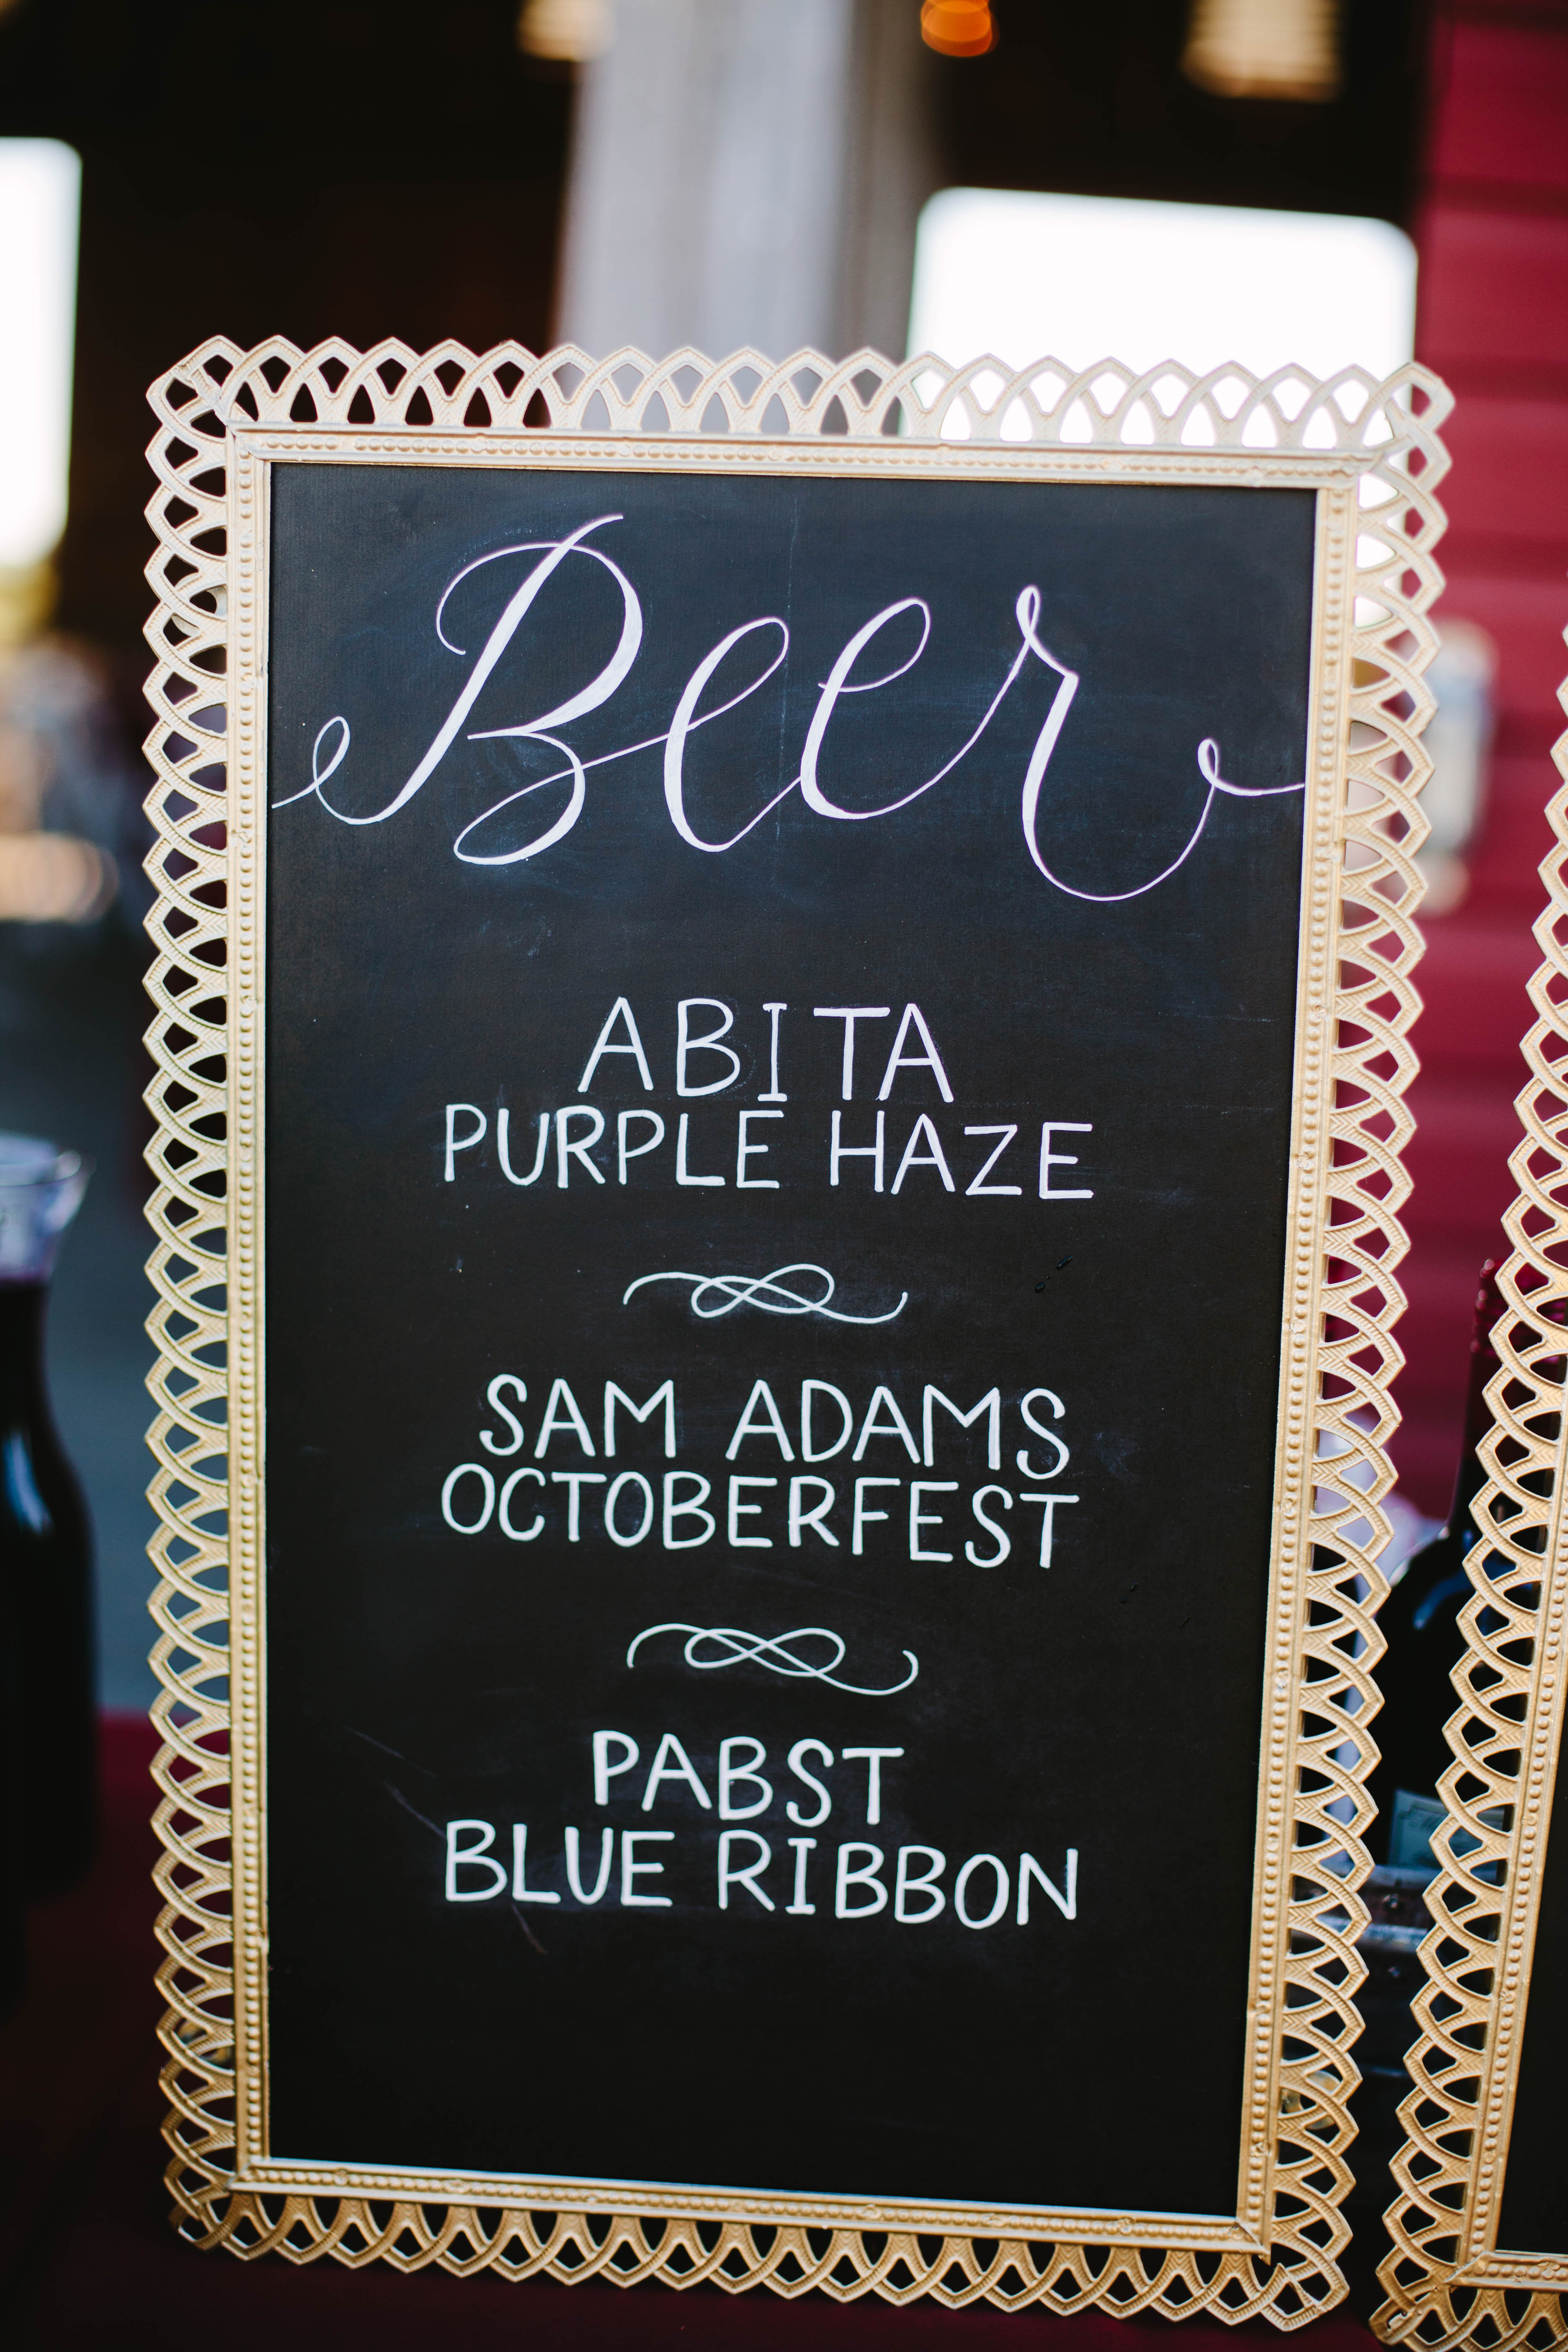 Beer
ABITA
PURPLE HAZE
SAM ADAMS
OCTOBERFEST
PABST
BLUE RIBBON